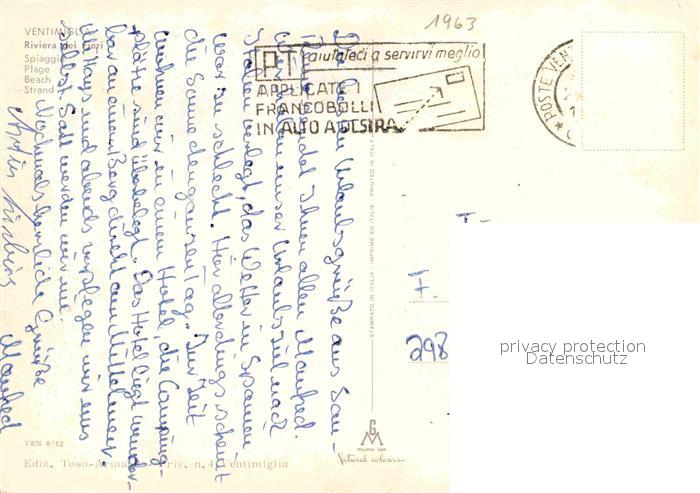 1963
VENTIMIGLIA
Riviera dei Fiori
Spiaggia
Plage
Beach
Strand
PT aiutateci a servirvi meglio
APPLICATE I
FRANCOBOLLI
IN ALTO A DESTRA
POSTE VENT
Die besten Urlaubsgrüße aus San-
sendet Ihnen allen Manfred.
unser Urlaubsziel nach
Italien verlegt, das Wetter in Spanien
war zu schlecht. Hier allerdings scheint
die Sonne den ganzen Tag. Zur Zeit
wohnen wir in einem Hotel, die Camping-
plätze sind überbelegt. Das Hotel liegt wunder-
bar an einem Berg direkt am Mittelmeer.
Mittags und abends verpflegen wir uns
selbst. Satt werden wir nie.
Nochmals herzliche Grüße
Manfred
STAMPATO IN ITALIA - IMPRIMÉ EN ITALIE - PRINTED IN ITALY
F.
298
privacy protection
Datenschutz
VEN 8/12
Ediz. Toso-Arma Priv. n. 4 Ventimiglia
G M
Natural colours